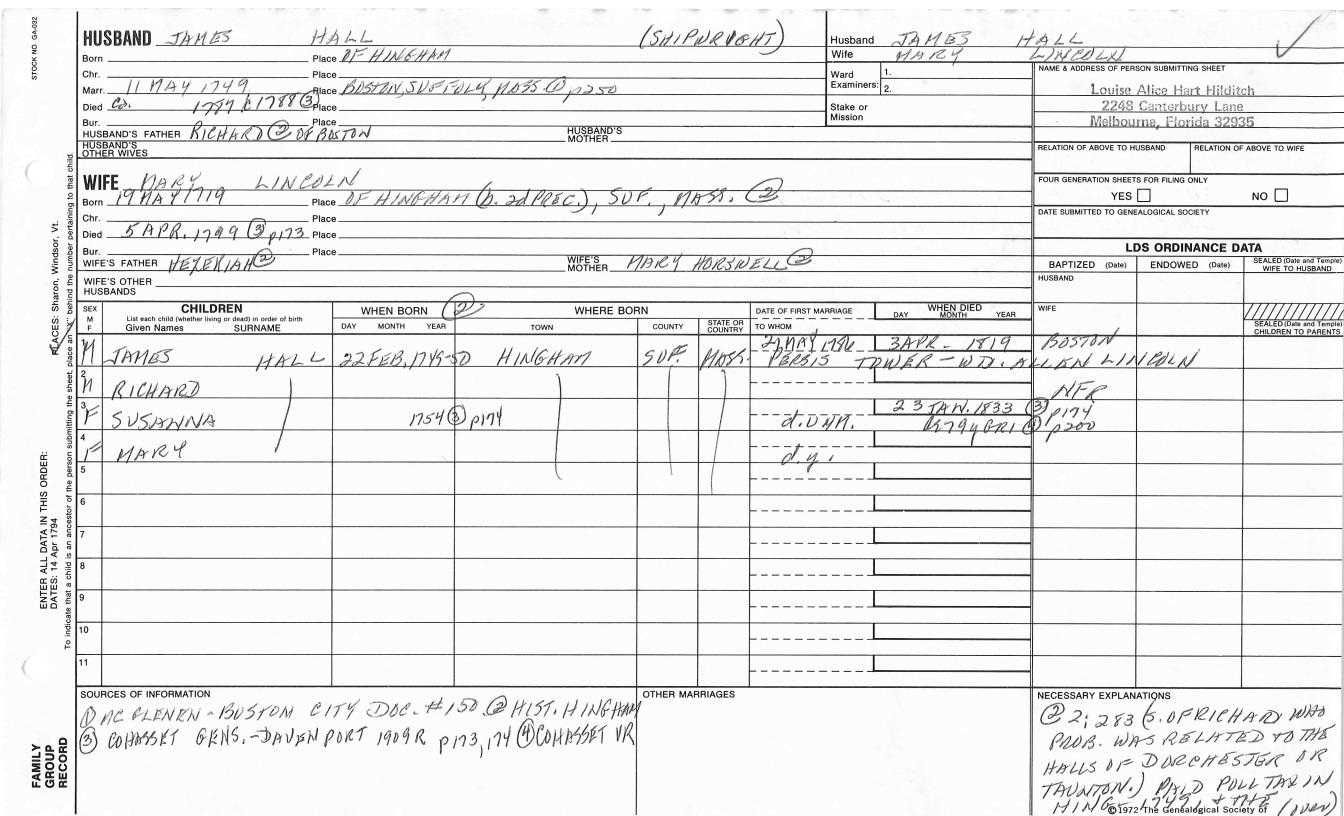 STOCK NO. GA-032
HUSBAND JAMES HALL (SHIPWRIGHT)
Born Place OF HINGHAM
Chr. Place
Marr. 11 MAY 1749 Place BOSTON, SUFFOLK, MASS. ① p250
Died Ca. 1787 C1788 ③ Place
Bur. Place
HUSBAND'S FATHER RICHARD ② OF BOSTON HUSBAND'S MOTHER
HUSBAND'S OTHER WIVES
WIFE MARY LINCOLN
Born 19 MAY 1719 Place OF HINGHAM (b. 2d PREC.), SUF., MASS. ②
Chr. Place
Died 5 APR. 1799 ③ p173 Place
Bur. Place
WIFE'S FATHER HEZEKIAH ② WIFE'S MOTHER MARY HORSWELL ②
WIFE'S OTHER HUSBANDS
Husband JAMES HALL
Wife MARY LINCOLN
Ward Examiners: 1.
2.
Stake or Mission
NAME & ADDRESS OF PERSON SUBMITTING SHEET
Louise Alice Hart Hilditch
2248 Canterbury Lane
Melbourne, Florida 32935
RELATION OF ABOVE TO HUSBAND RELATION OF ABOVE TO WIFE
FOUR GENERATION SHEETS FOR FILING ONLY
YES NO
DATE SUBMITTED TO GENEALOGICAL SOCIETY
LDS ORDINANCE DATA
BAPTIZED (Date) ENDOWED (Date) SEALED (Date and Temple) WIFE TO HUSBAND
HUSBAND
WIFE
SEALED (Date and Temple) CHILDREN TO PARENTS
SEX M F CHILDREN WHEN BORN ② WHERE BORN DATE OF FIRST MARRIAGE WHEN DIED
List each child (whether living or dead) in order of birth
Given Names SURNAME DAY MONTH YEAR TOWN COUNTY STATE OR COUNTRY TO WHOM DAY MONTH YEAR
MAY 3 APR - 1819 BOSTON
M JAMES HALL 22 FEB, 1749-50 HINGHAM SUF. MASS. PERSIS TOWER - WD. ALLEN LINCOLN
2 M RICHARD NFR
3 F SUSANNA 1754 ③ p174 d. unm. 23 JAN. 1833 ③ p174
AE 79y GR1 ④ p200
4 F MARY d.y.
5
6
7
8
9
10
11
ENTER ALL DATA IN THIS ORDER:
DATES: 14 Apr 1794
PLACES: Sharon, Windsor, Vt.
To indicate that a child is an ancestor of the person submitting the sheet, place an "X" behind the number pertaining to that child.
FAMILY GROUP RECORD
SOURCES OF INFORMATION
① MC GLENEN - BOSTON CITY DOC. #150 ② HIST. HINGHAM
③ COHASSET GENS. - DAVENPORT 1909R p173, 174 ④ COHASSET VR
OTHER MARRIAGES
NECESSARY EXPLANATIONS
② 2; 283 (S. OF RICHARD WHO
PROB. WAS RELATED TO THE
HALLS OF DORCHESTER OR
TAUNTON.) PAID POLL TAX IN
HING. 1749, + THE (over)
©1972 The Genealogical Society of